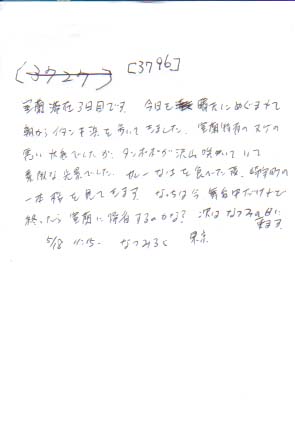 (3727) [3796]
室蘭滞在3日目です 今日も晴天にめぐまれて
朝からイタンキ浜を歩いてきました。室蘭特有の
寒い でしたが、タンポポが沢山咲いていて
素敵な光景でした。カレーなはを食べた後、崎守町の
一本桜を見てきます。なっちは今舞台中だけど
終ったら室蘭に帰省するのかな? 次はなつみの日に
来ます
5/18 11:15- なつみるく 東京